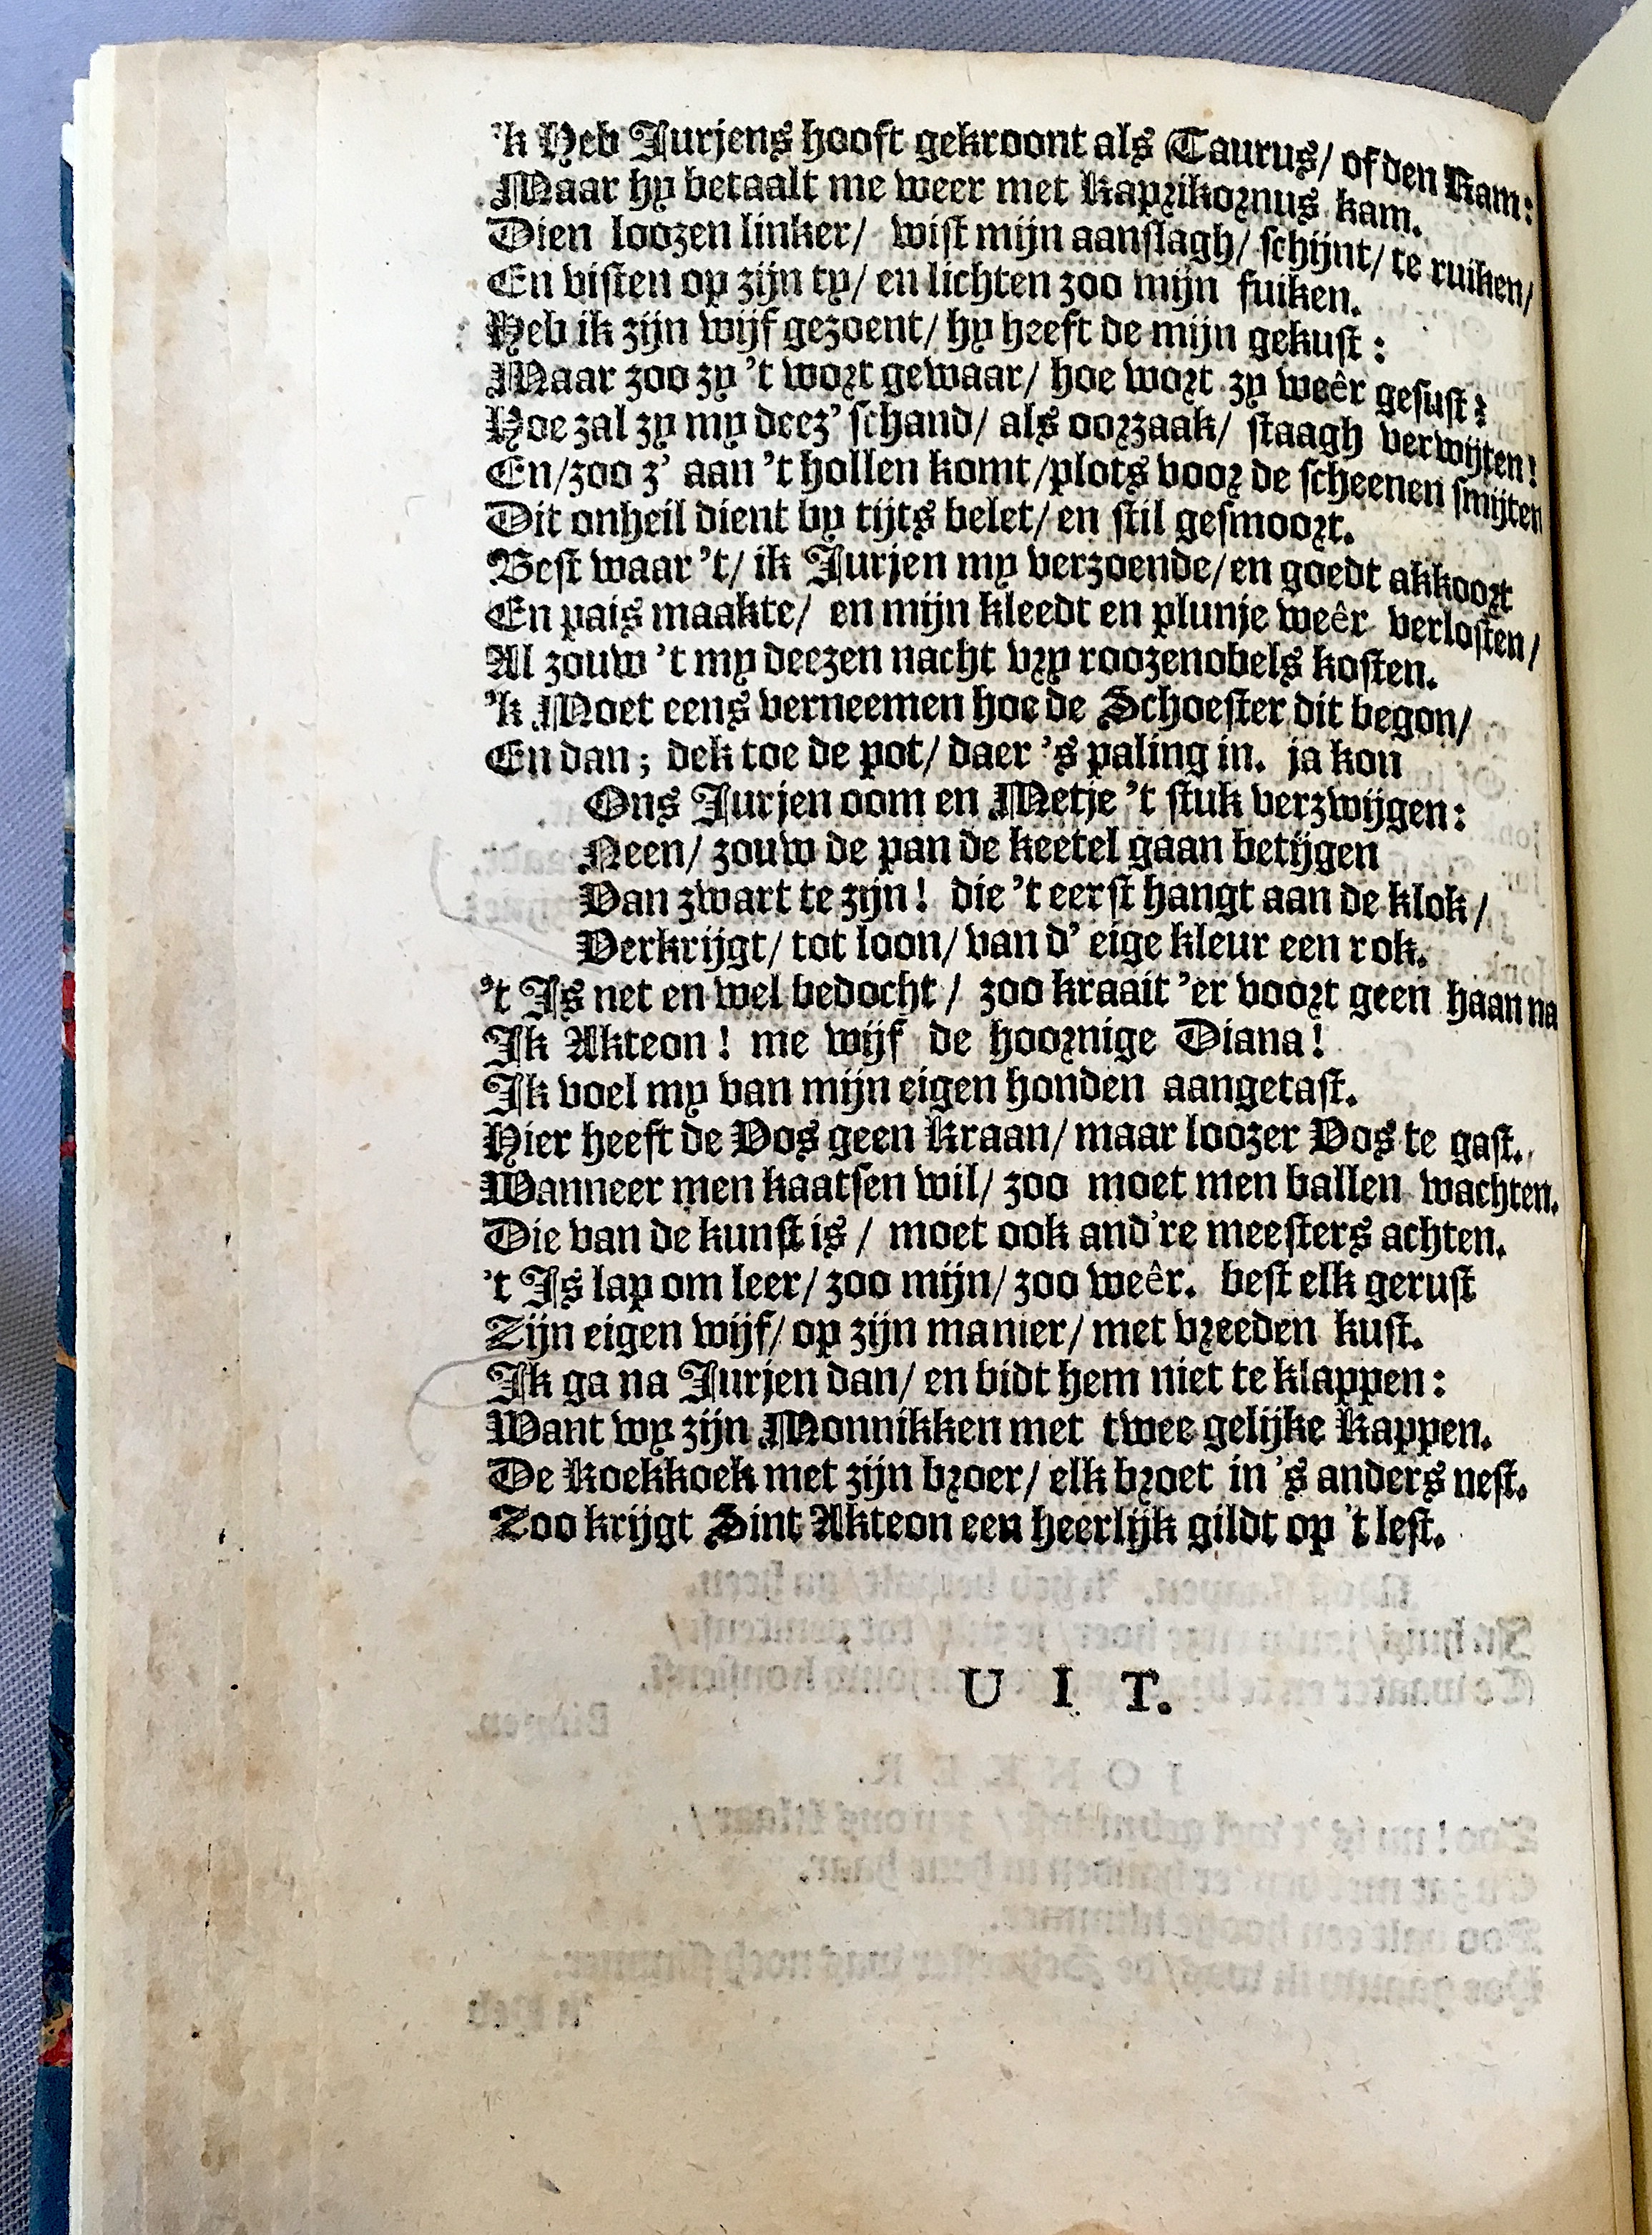 'k Heb Jurjens hooft gekroont als Taurus/ of den Ram:
Maar hy betaalt me weer met Kaprikornus kam.
Dien loozen linker/ wist mijn aanslagh/ schijnt/ te ruiken/
En visten op zijn ty/ en lichten zoo mijn fuiken.
Heb ik zijn wijf gezoent/ hy heeft de mijn gekust:
Maar zoo zy 't wort gewaar/ hoe wort zy weêr gesust?
Hoe zal zy my deez' schand/ als oorzaak/ staagh verwijten!
En/ zoo z' aan 't hollen komt/ plots voor de scheenen smijten
Dit onheil dient by tijts belet/ en stil gesmoort.
Best waar 't/ ik Jurjen my verzoende/ en goedt akkoort
En pais maakte/ en mijn kleedt en plunje weêr verlosten/
Al zouw 't my deezen nacht vry roozenobels kosten.
'k Moet eens verneemen hoe de Schoester dit begon/
En dan; dek toe de pot/ daer 's paling in. ja kon
Ons Jurjen oom en Metje 't stuk verzwijgen:
Neen/ zouw de pan de keetel gaan betijgen
Van zwart te zijn! die 't eerst hangt aan de klok/
Verkrijgt/ tot loon/ van d' eige kleur een rok.
't Is net en wel bedocht/ zoo kraait 'er voort geen haan na
Ik Akteon! me wijf de hoornige Diana!
Ik voel my van mijn eigen honden aangetast.
Hier heeft de Vos geen Kraan/ maar loozer Vos te gast.
Wanneer men kaatsen wil/ zoo moet men ballen wachten.
Die van de kunst is/ moet ook and're meesters achten.
't Is lap om leer/ zoo mijn/ zoo weêr. best elk gerust
Zijn eigen wijf/ op zijn manier/ met vreeden kust.
Ik ga na Jurjen dan/ en bidt hem niet te klappen:
Want wy zijn Monnikken met twee gelijke Kappen.
De Koekkoek met zijn broer/ elk broet in 's anders nest.
Zoo krijgt Sint Akteon een heerlijk gildt op 't lest.
U I T.